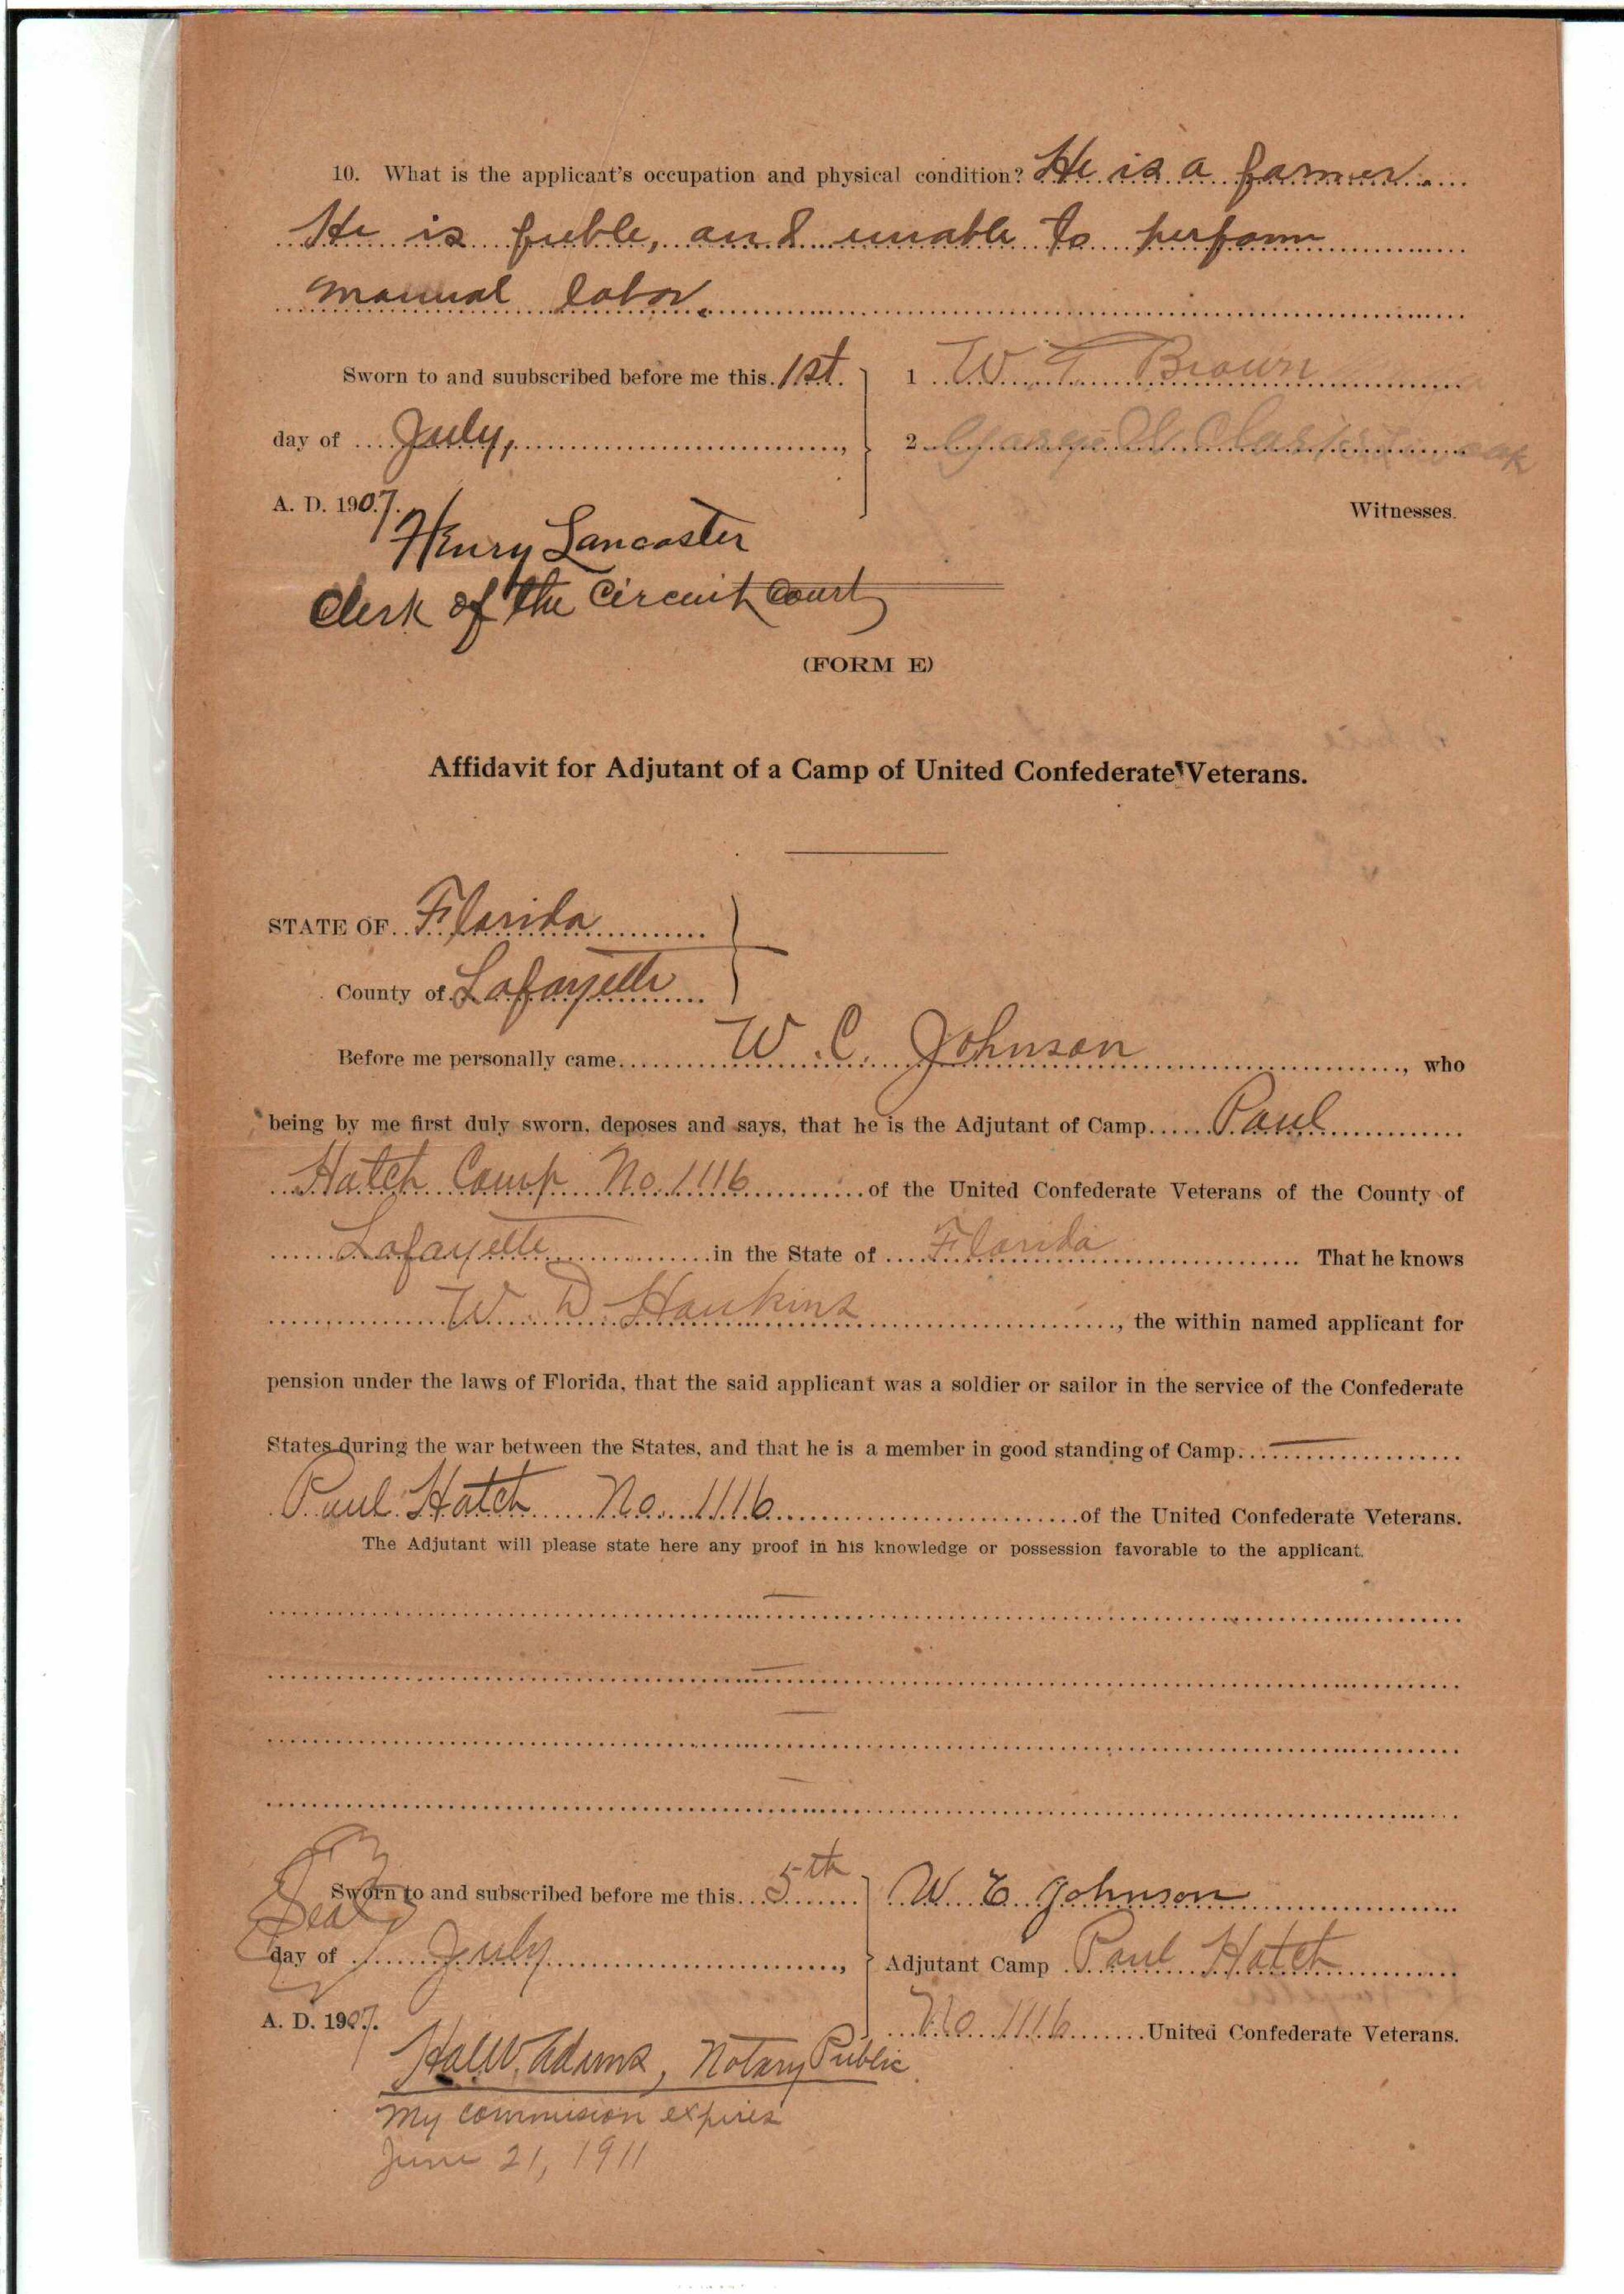 10. What is the applicant's occupation and physical condition? He is a farmer.
He is feeble, and unable to perform
manual labor.
Sworn to and suubscribed before me this 1st. 1 W T Brown
day of July, 2 George
A. D. 1907. Witnesses.
Henry Lancaster
Clerk of the Circuit Court
(FORM E)
Affidavit for Adjutant of a Camp of United Confederate Veterans.
STATE OF Florida
County of Lafayette
Before me personally came W. C. Johnson, who
being by me first duly sworn, deposes and says, that he is the Adjutant of Camp Paul
Hatch Camp No. 1116 of the United Confederate Veterans of the County of
Lafayette in the State of Florida That he knows
W. D. Hawkins, the within named applicant for
pension under the laws of Florida, that the said applicant was a soldier or sailor in the service of the Confederate
States during the war between the States, and that he is a member in good standing of Camp
Paul Hatch No. 1116 of the United Confederate Veterans.
The Adjutant will please state here any proof in his knowledge or possession favorable to the applicant.
Seal
Sworn to and subscribed before me this 5th W. C Johnson
day of July, Adjutant Camp Paul Hatch
A. D. 1907. No 1116 United Confederate Veterans.
Hal W. Adams, Notary Public
My commission expires
June 21, 1911